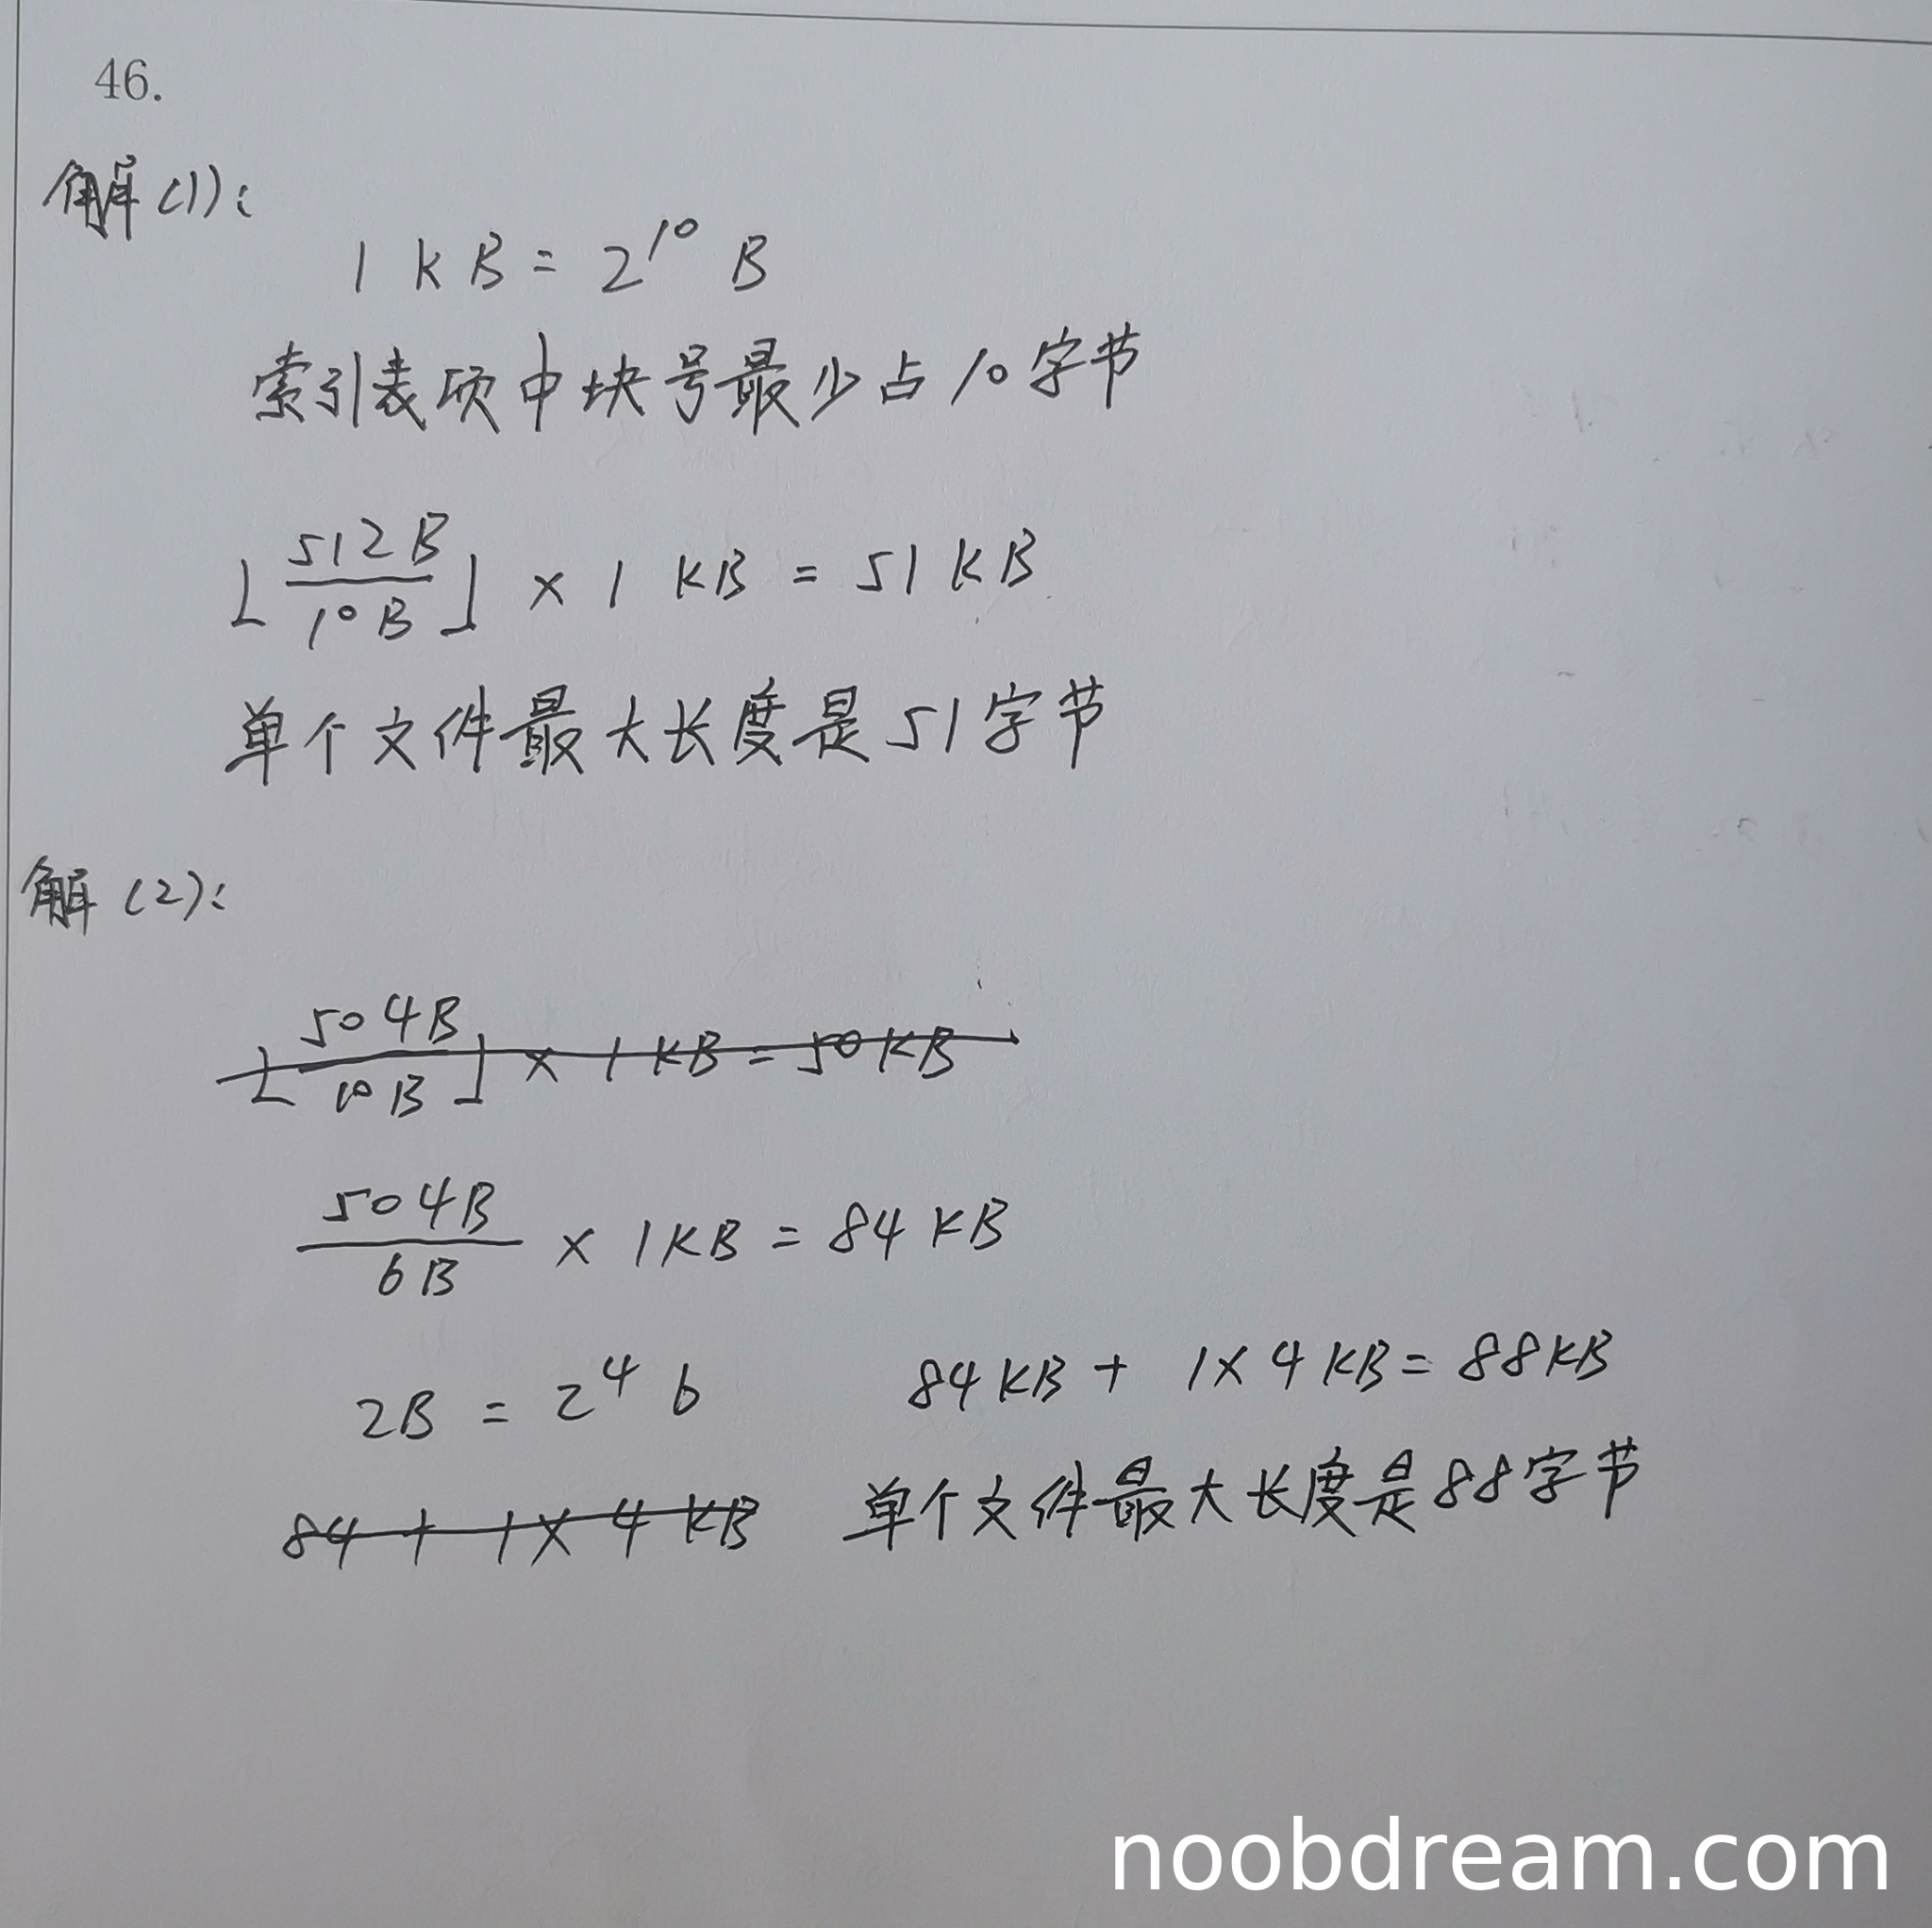 46.
解(1):
1 KB = 2^10 B
索引表项中块号最少占10字节
⌊512B/10B⌋ × 1 KB = 51 KB
单个文件最大长度是51字节
解(2):
⌊504B/10B⌋ × 1 KB = 50 KB
504B/6B × 1KB = 84 KB
2B = 2^4 b 84KB + 1×4KB = 88KB
84 + 1×4 KB 单个文件最大长度是88字节
noobdream.com